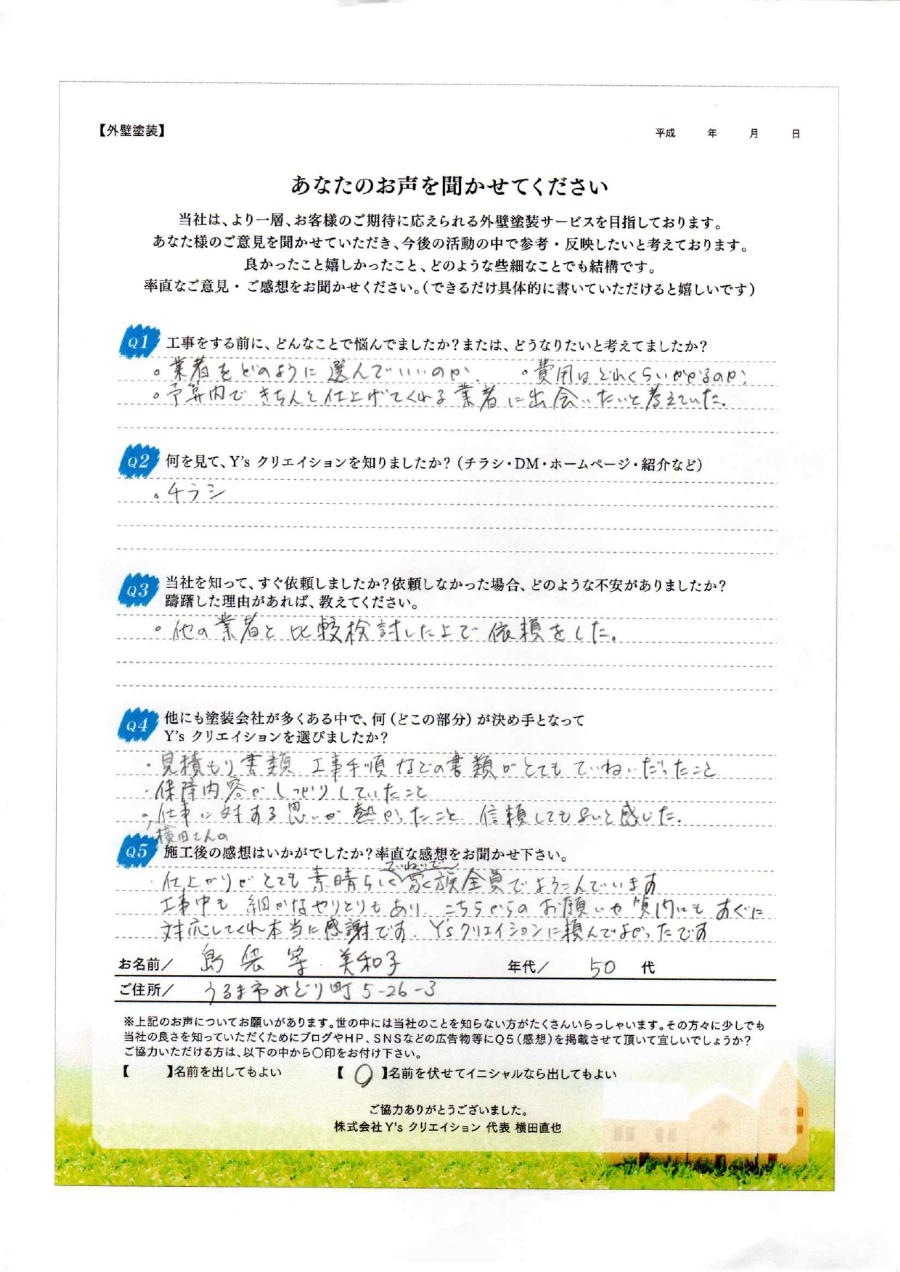 【外壁塗装】
平成　年　月　日
あなたのお声を聞かせてください
当社は、より一層、お客様のご期待に応えられる外壁塗装サービスを目指しております。
あなた様のご意見を聞かせていただき、今後の活動の中で参考・反映したいと考えております。
良かったこと嬉しかったこと、どのような些細なことでも結構です。
率直なご意見・ご感想をお聞かせください。(できるだけ具体的に書いていただけると嬉しいです)
Q1 工事をする前に、どんなことで悩んでましたか?または、どうなりたいと考えてましたか?
。業者をどのように選んでいいのか 。費用はどれくらいかかるのか?
。予算内できちんと仕上げてくれる業者に出会いたいと考えていた。
Q2 何を見て、Y's クリエイションを知りましたか?(チラシ・DM・ホームページ・紹介など)
。チラシ
Q3 当社を知って、すぐ依頼しましたか?依頼しなかった場合、どのような不安がありましたか?
躊躇した理由があれば、教えてください。
。他の業者と比較検討した上で依頼をした。
Q4 他にも塗装会社が多くある中で、何(どこの部分)が決め手となって
Y's クリエイションを選びましたか?
・見積もり書類 工事手順などの書類がとてもていねいだったこと
・保障内容がしっかりしていたこと
・仕事に対する思いが熱かったこと 信頼してもよいと感じた。
横田さんの
Q5 施工後の感想はいかがでしたか?率直な感想をお聞かせ下さい。
ていねいで
仕上がりがとても素晴らしく家族全員でよろこんでいます
工事中も細かなやりとりもあり、こちらからのお願いや質問にもすぐに
対応してくれ本当に感謝です。Y'sクリエイションに頼んでよかったです
お名前/ 島袋 美和子 年代/ 50 代
ご住所/ うるま市みどり町5-26-3
※上記のお声についてお願いがあります。世の中には当社のことを知らない方がたくさんいらっしゃいます。その方々に少しでも
当社の良さを知っていただくためにブログやHP、SNSなどの広告物等にQ5(感想)を掲載させて頂いて宜しいでしょうか?
ご協力いただける方は、以下の中から〇印をお付け下さい。
【　】名前を出してもよい 【〇】名前を伏せてイニシャルなら出してもよい
ご協力ありがとうございました。
株式会社Y's クリエイション 代表 横田直也